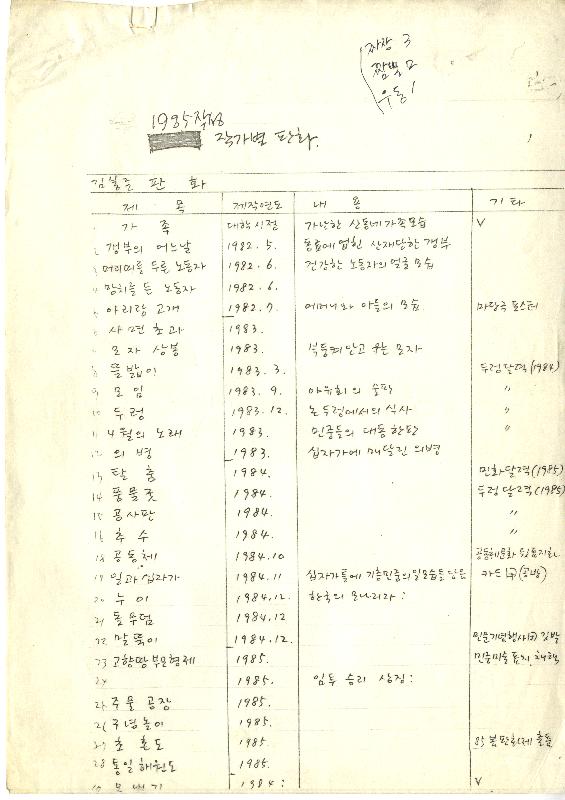 짜장 3
짬뽕 2
우동 1
1985작성
작가별 판화.
김봉준 판화
제 목 제작연도 내 용 기 타
가 족 대학시절 가난한 산동네 가족모습 V
2 갱부의 어느날 1982. 5. 산재당한 갱부
3 머리띠를 두른 노동자 1982. 6. 건강한 노동자의 얼굴 모습
4 망치를 든 노동자 1982. 6.
5 아리랑 고개 1982. 7. 어머니와 아들의 모습 마당극 포스터
6 사면초과 1983.
7 모자 상봉 1983. 부둥켜안고 우는 모자
8 뜰밟이 1983. 3. 두렁달력(1984)
9 모임 1983. 9. 야유회의 술판 〃
10 두렁 1983. 12. 논두렁에서의 식사 〃
11 4월의 노래 1983. 민중들의 대동한판 〃
12 의병 1983. 십자가에 매달린 의병
13 탈춤 1984. 민화달력(1985)
14 풍물굿 1984. 두렁달력(1985)
15 공사판 1984. 〃
16 추수 1984. 〃
18 공동체 1984. 10 공동체문화
19 일과 십자가 1984. 11 십자가틀에 기층민중의 일모습을 담음 카드
20 누이 1984. 12. 한국의 모나리자:
21 돌무덤 1984. 12
22 말뚝이 1984. 12.
23 고향땅 부모형제 1985. 민중미술 표지
24 1985. 임투 승리 상징:
25 주물 공장 1985.
26 1985.
27 초혼도 1985. 85 봄 판화제 출품
28 통일해원도 1985.
1984: V